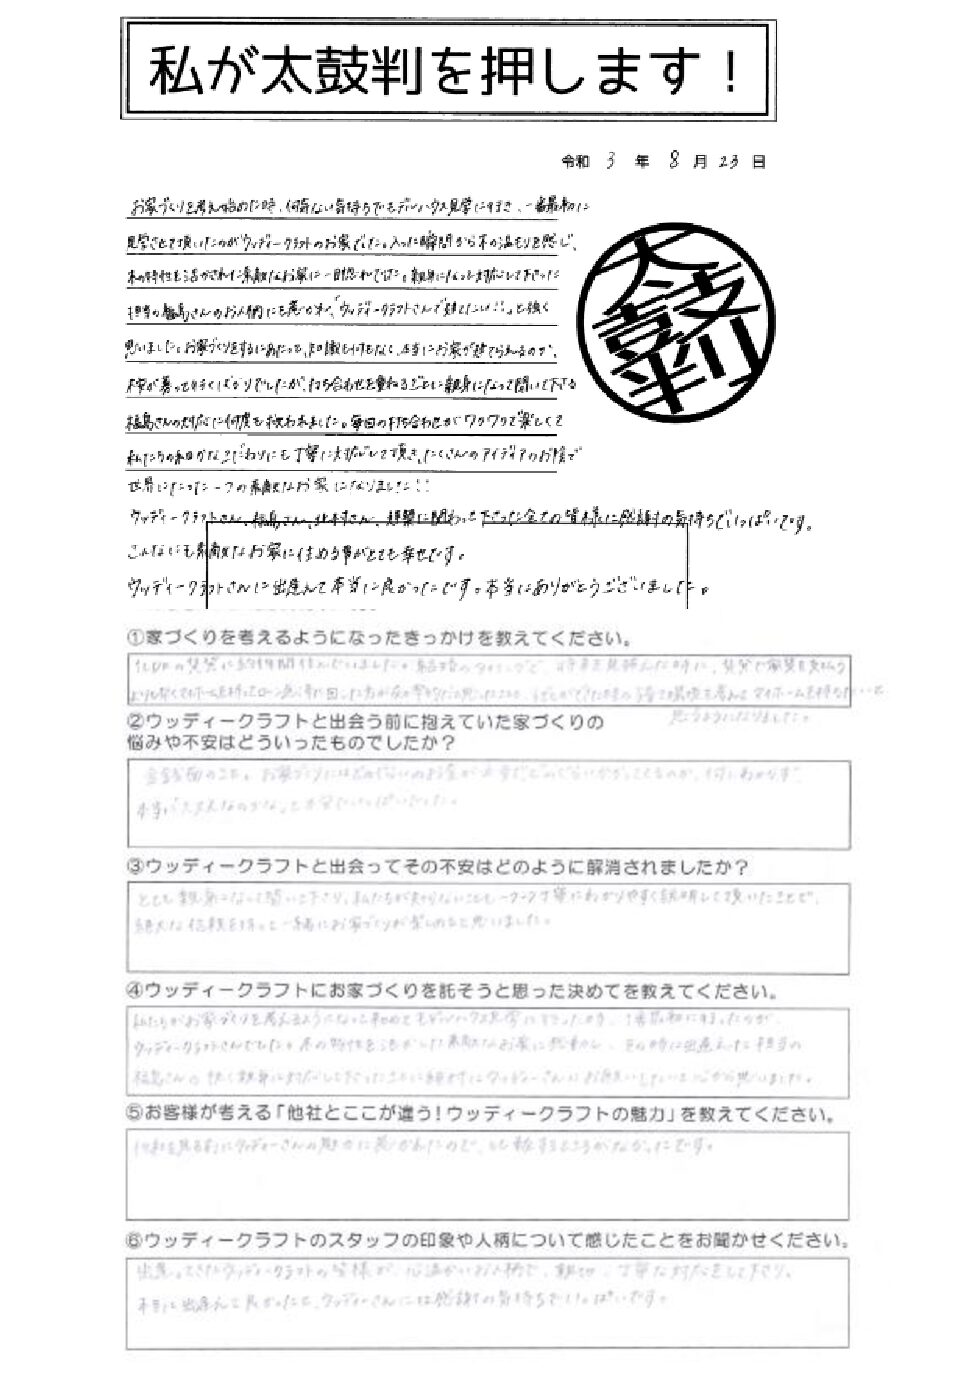 私が太鼓判を押します！
令和 3 年 8 月 23 日
お家づくりを考え始めた時、何気ない気持ちでモデルハウス見学に行き、一番最初に
見学させて頂いたのがウッディークラフトのお家でした。入った瞬間から木の温もりを感じ、
木の特性を活かされた素敵なお家に一目惚れでした。親身になって対応して下さった
担当の福島さんのお人柄にも惹かれ、「ウッディークラフトさんで建てたい!!」と強く
思いました。お家づくりをするにあたって、知識も何もなく、本当にお家が建てられるのか、
不安が募って行くばかりでしたが、打ち合わせを重ねるごとに親身になって聞いて下さる
福島さんの対応に何度も救われました。毎回の打ち合わせがワクワクで楽しくて
私たちの細かなこだわりにも丁寧に対応して頂き、たくさんのアイディアのお陰で
世界にたった一つの素敵なお家になりました!!
ウッディークラフトさん、福島さん、北村さん、建築に関わって下さった全ての皆様に感謝の気持ちでいっぱいです。
こんなにも素敵なお家に住める事がとても幸せです。
ウッディークラフトさんに出逢えて本当に良かったです。本当にありがとうございました。
太鼓判
①家づくりを考えるようになったきっかけを教えてください。
結婚のタイミングで、将来を見据えた時に、賃貸で家賃を支払う
よりも マイホームを持ちたいと
思うようになりました。
②ウッディークラフトと出会う前に抱えていた家づくりの
悩みや不安はどういったものでしたか？
金銭面のこと。お家づくりにはどのくらいのお金が 何もわからず
本当に大丈夫なのかな、と不安でいっぱいでした。
③ウッディークラフトと出会ってその不安はどのように解消されましたか？
とても親身になって聞いて下さり、私たちが知らないことも一つ一つ丁寧にわかりやすく説明して頂いたことで、
絶大な信頼を持って一緒にお家づくりが楽しめると思いました。
④ウッディークラフトにお家づくりを託そうと思った決めてを教えてください。
私たちがお家づくりを考えるようになって初めてモデルハウス見学に行った時、1番最初に行ったのが、
ウッディークラフトさんでした。木の特性を活かした素敵なお家に感動し、その時に出逢えた担当の
福島さんの 親身に対応して下さったことに絶対にウッディーさんにお願いしたいと心から思いました。
⑤お客様が考える「他社とここが違う！ウッディークラフトの魅力」を教えてください。
他社を見る前にウッディーさんの魅力に惹かれたので、比較するところがなかったです。
⑥ウッディークラフトのスタッフの印象や人柄について感じたことをお聞かせください。
出逢ってきたウッディークラフトの皆様が、心温かいお人柄で、親切、丁寧な対応をして下さり、
本当に出逢えて良かったと、ウッディーさんには感謝の気持ちでいっぱいです。